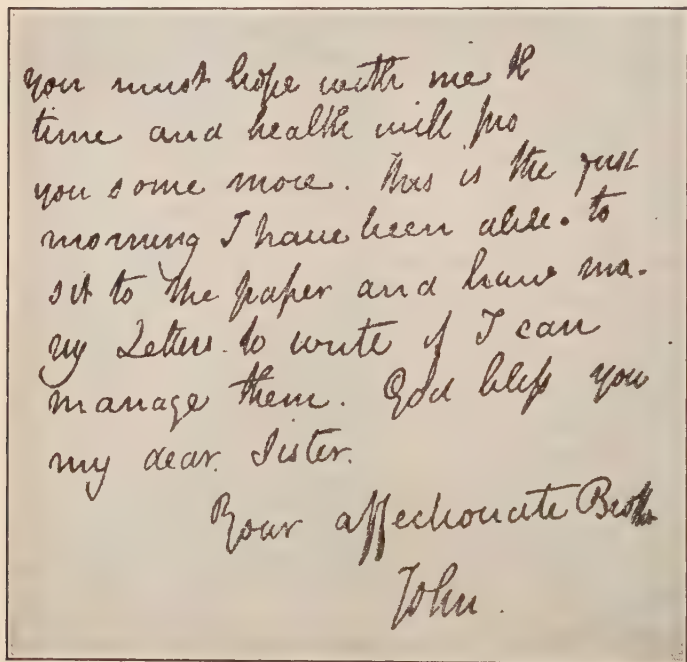 you must hope with me th
time and health will pro
you some more. This is the first
morning I have been able to
sit to the paper and have ma-
ny Letters to write if I can
manage them. God bless you
my dear Sister.
Your affectionate Brother
John.